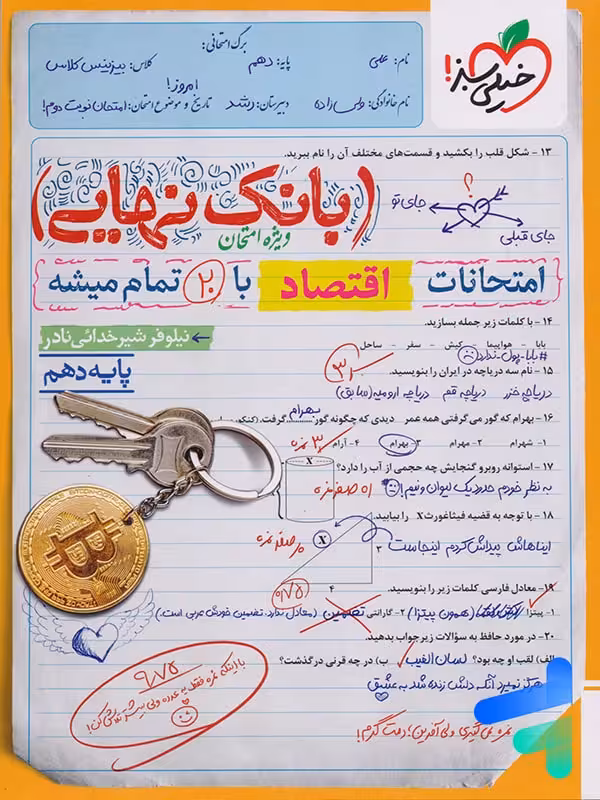 برگ امتحانی:
نام: علی
پایه: دهم
کلاس: بیزینس کلاس
نام خانوادگی: ولی زاده
دبیرستان: رشد
تاریخ و موضوع امتحان: امروز! امتحان نوبت دوم!
خیلی سبز!
۱۳ - شکل قلب را بکشید و قسمت‌های مختلف آن را نام ببرید.
؟
جای تو
جای قبلی
(بانک نهایی)
ویژه امتحان
امتحانات اقتصاد با ۲۰ تمام میشه
نیلوفر شیرخدائی نادر
پایه دهم
۱۴ - با کلمات زیر جمله بسازید.
بابا - هواپیما - کیش - سفر - ساحل
#بابا-پول-ندارد
۱۵ - نام سه دریاچه در ایران را بنویسید.
دریاچه خزر دریاچه قم دریاچه ارومیه (سابق)
۱۶ - بهرام که گور می‌گرفتی همه عمر دیدی که چگونه گور بهرام گرفت.
۱- شهرام ۲- مهرام ۳- بهرام ۴- آرام
۱۷ - استوانه روبرو گنجایش چه حجمی از آب را دارد؟
x
به نظر خودم حدود یک لیوان و نیم!
۱۸ - با توجه به قضیه فیثاغورث X را بیابید.
X
ایناهاش پیداش کردم اینجاست
۳
۴
۱۹- معادل فارسی کلمات زیر را بنویسید.
۱- پیتزا (همون پیتزا) ۲- گارانتی تضمین (معادل ندارد. تضمین خودش عربی است.)
۲۰- در مورد حافظ به سؤالات زیر جواب بدهید.
الف) لقب او چه بود؟ لسان الغیب ب) در چه قرنی درگذشت؟
هرگز نمیرد آنکه دلش زنده شد به عشق
۹/۷۵
با اینکه نمره فقط یه عدده ولی بیشتر تلاش کن!
نمره نمی‌گیری ولی آفرین؛ دمت گرم!